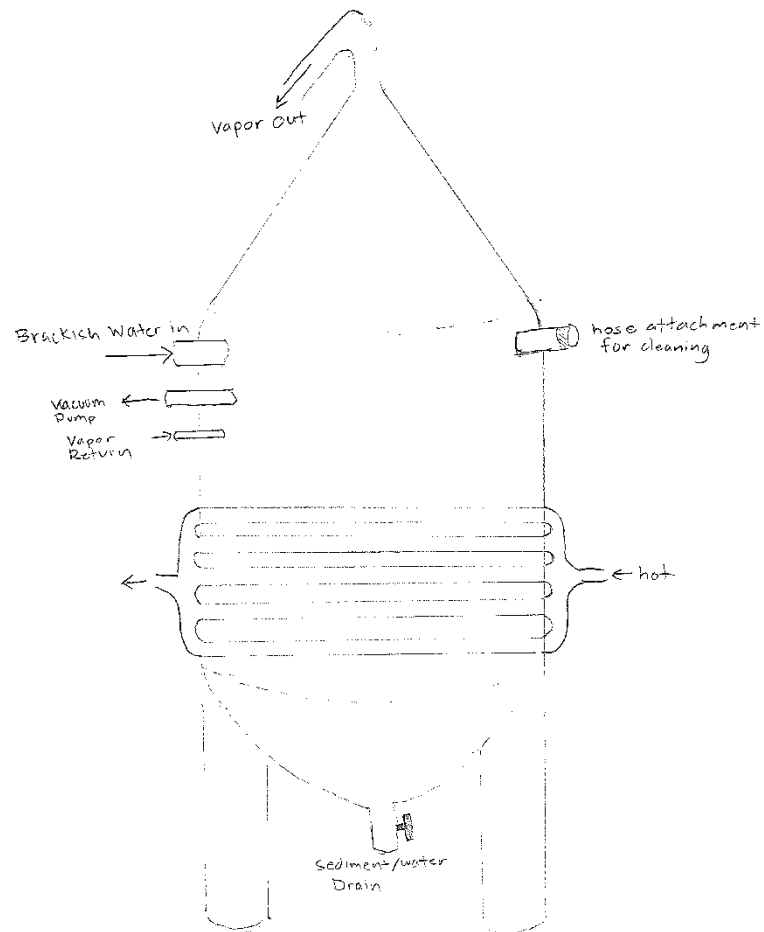 Vapor Out
Brackish Water in
hose attachment
for cleaning
Vacuum
Pump
Vapor
Return
hot
Sediment/water
Drain